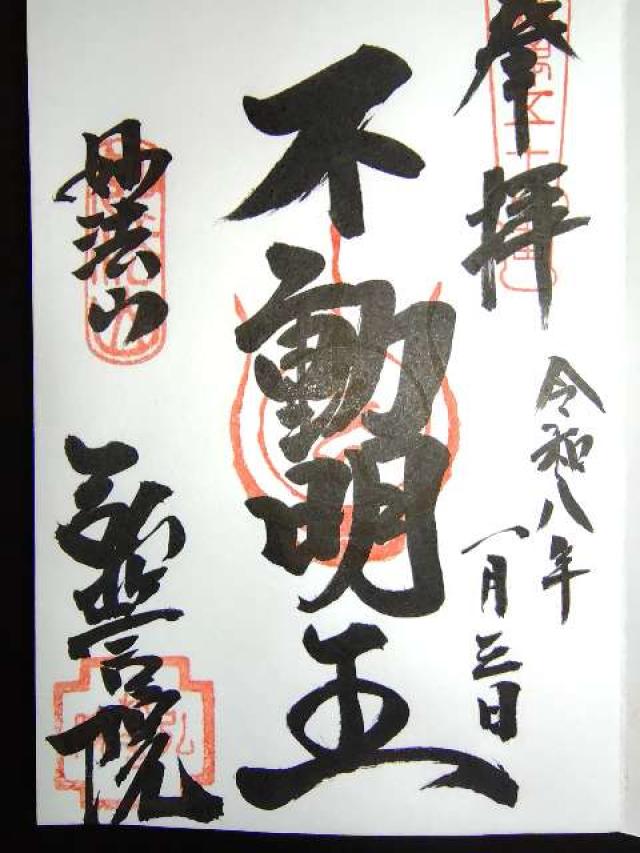 奉拝
令和八年
一月三日
不動明王
妙法山
弘誓院